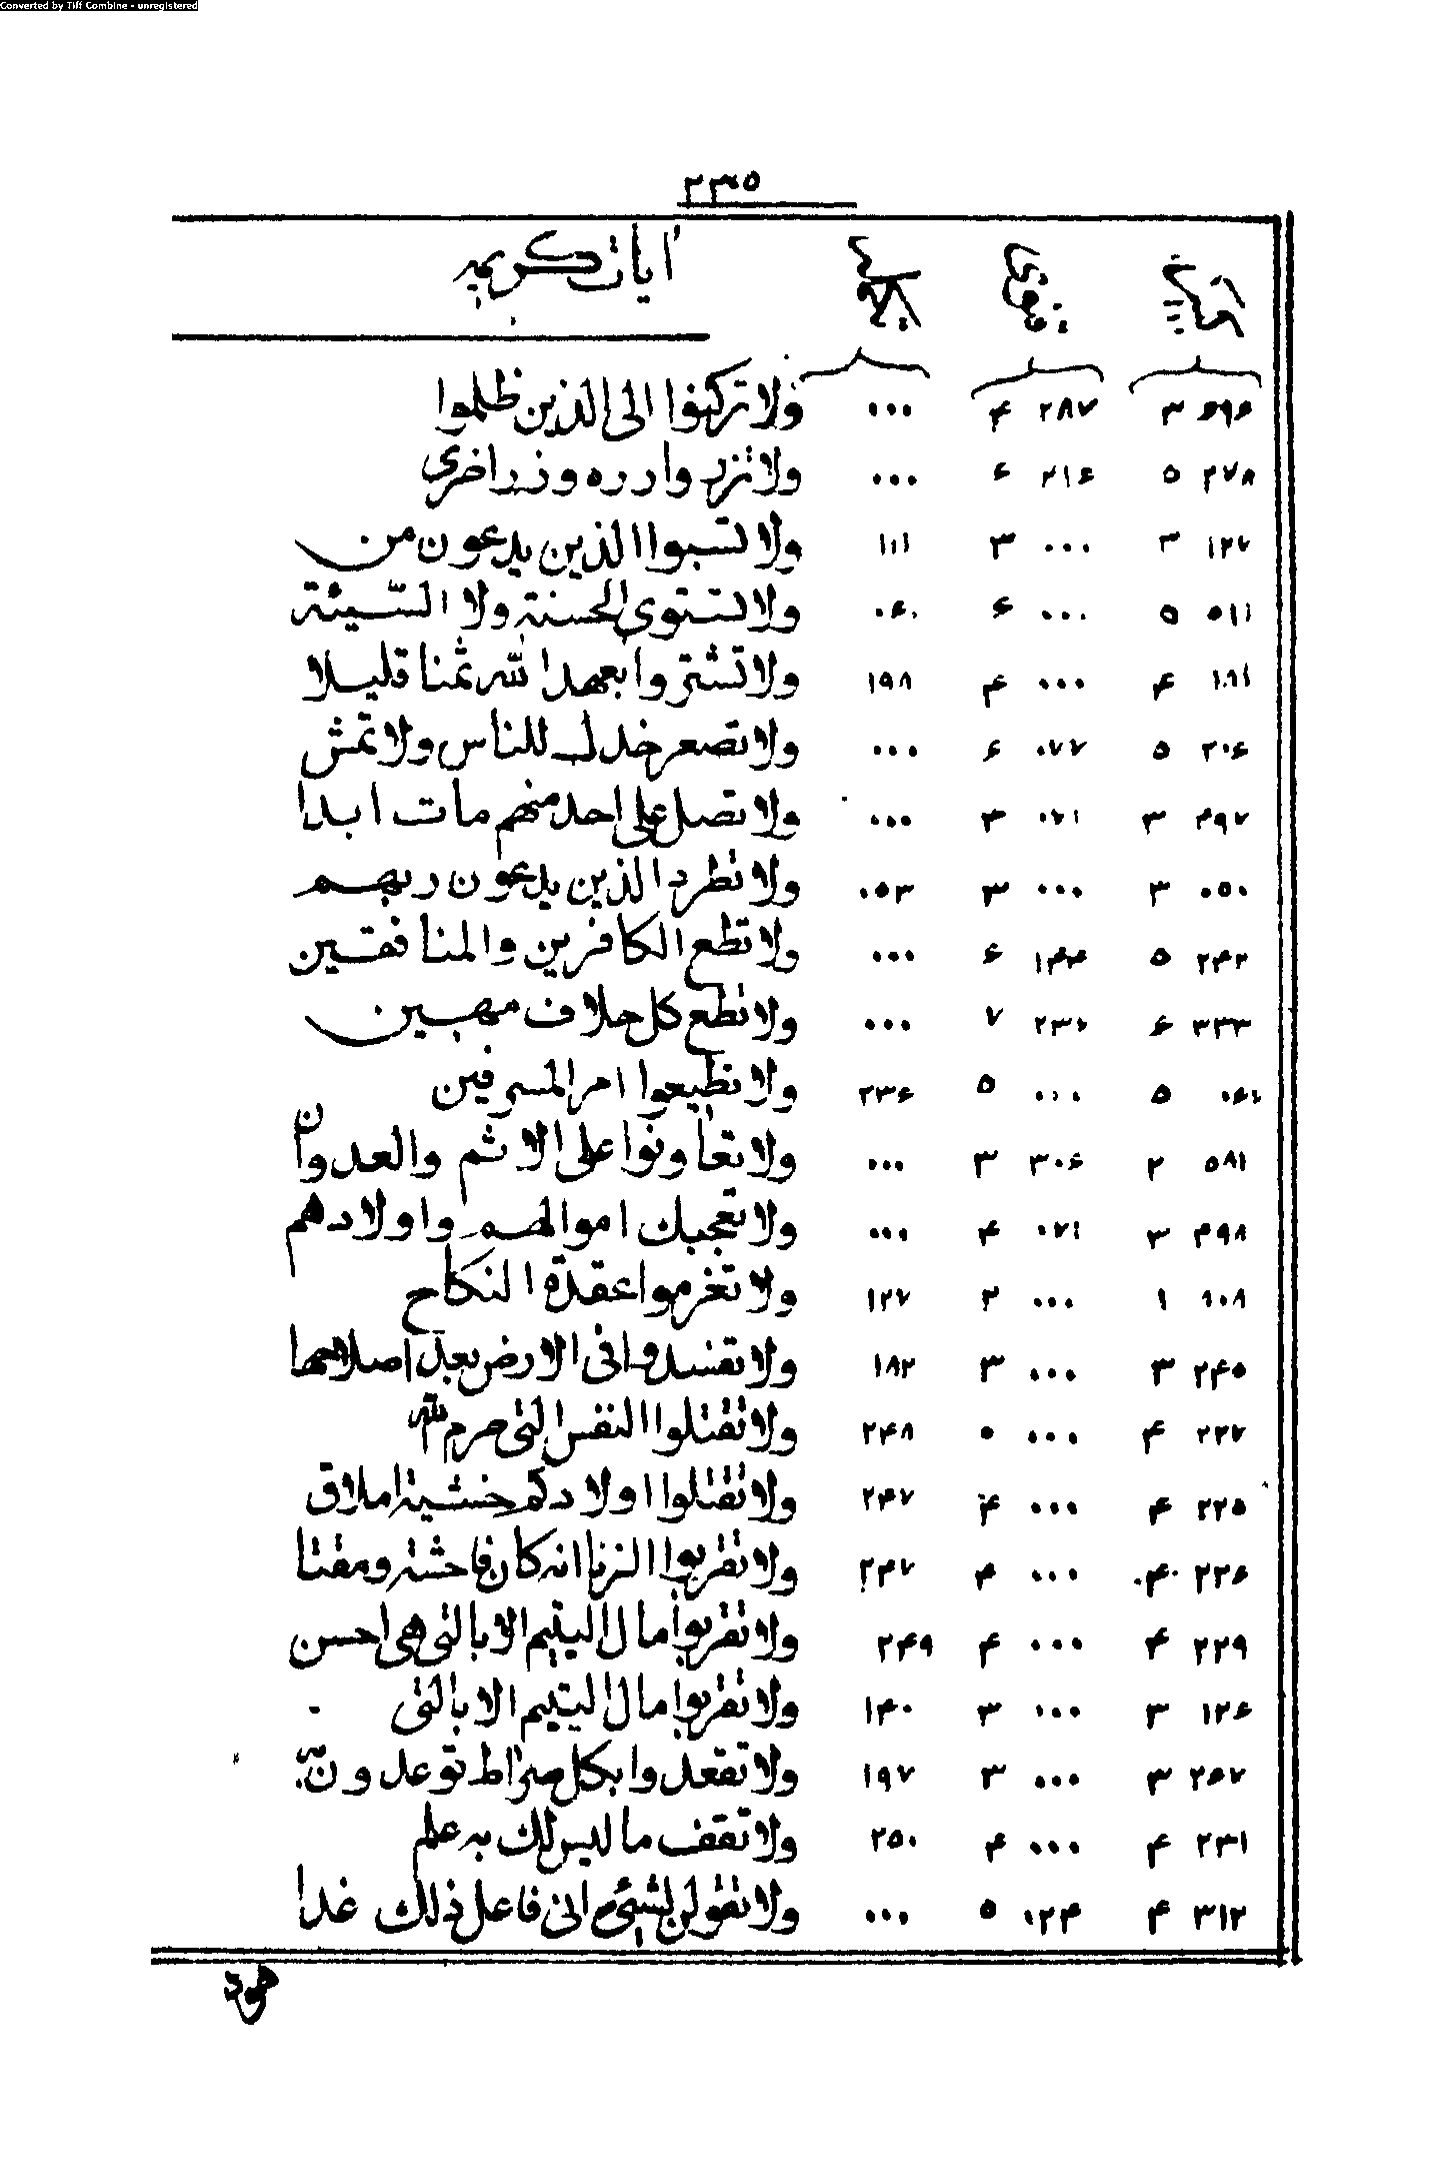 Converted by Tiff Combine - unregistered
۲۳۵
ایات کریمه
۳ ۲۸۷ ۴ ۰۰۰ ولا ترکنوا الی الذین ظلموا
۲۷۸ ۵ ۲۱۶ ۶ ۰۰۰ ولا تزر وازره وزر اخری
۱۲۷ ۳ ۰۰۰ ۳ ۱۱۱ ولا تسبوا الذین یدعون من
۵۱۱ ۵ ۰۰۰ ۶ ۰۶۰ ولا تستوی الحسنة ولا السّیئة
۴ ۰۰۰ ۴ ۱۹۸ ولا تشتروا بعهد الله ثمنا قلیلا
۲۰۶ ۵ ۰۷۷ ۶ ۰۰۰ ولا تصعر خدك للناس ولا تمش
۴۹۷ ۳ ۰۷۱ ۴ ۰۰۰ ولا تصل علی احد منهم مات ابدا
۰۵۰ ۳ ۰۰۰ ۳ ۰۵۳ ولا تطرد الذین یدعون ربهم
۲۴۲ ۵ ۱۴۴ ۶ ۰۰۰ ولا تطع الکافرین والمنافقین
۳۳۳ ۶ ۷ ۰۰۰ ولا تطع کل حلاف مهین
۵ ۰۰۰ ۵ ۲۳۶ ولا تطیعوا امر المسرفین
۵۸۱ ۲ ۳۰۶ ۳ ۰۰۰ ولا تعاونوا علی الاثم والعدوان
۴۹۸ ۳ ۰۷۱ ۴ ۰۰۰ ولا تعجبك اموالهم واولادهم
۱ ۰۰۰ ۲ ۱۲۷ ولا تغزموا عقدة النکاح
۲۴۵ ۳ ۰۰۰ ۳ ۱۸۲ ولا تفسدوا فی الارض بعد اصلاحها
۲۲۷ ۴ ۰۰۰ ۵ ۲۴۸ ولا تقتلوا النفس التی حرم الله
۲۲۵ ۴ ۰۰۰ ۴ ۲۴۷ ولا تقتلوا اولادکم خشیة املاق
۲۲۶ ۴ ۰۰۰ ۴ ۲۴۷ ولا تقربوا الزنا انه کان فاحشة ومقتا
۲۲۹ ۴ ۰۰۰ ۴ ۲۴۹ ولا تقربوا مال الیتیم الا بالتی هی احسن
۱۲۶ ۳ ۰۰۰ ۳ ۱۴۰ ولا تقربوا مال الیتیم الا بالتی
۲۶۷ ۳ ۰۰۰ ۳ ۱۹۷ ولا تقعدوا بکل صراط توعدون
۲۳۱ ۴ ۰۰۰ ۴ ۲۵۰ ولا تقف ما لیس لك به علم
۳۱۲ ۴ ۰۲۴ ۵ ۰۰۰ ولا تقولن لشیء انی فاعل ذلك غدا
هود